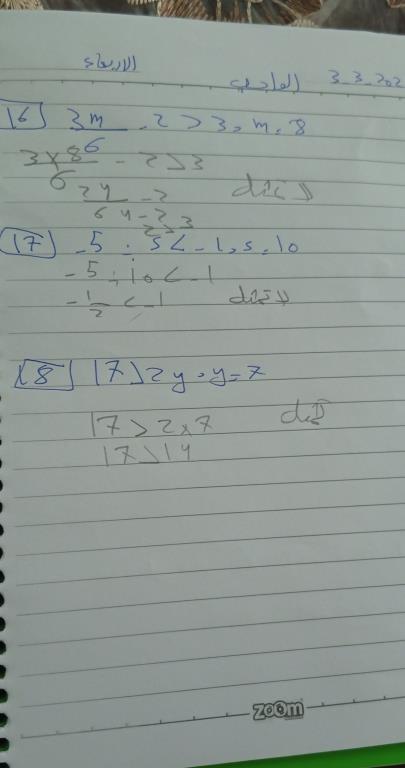 الاربعاء
الواجب 3.3.202
16 3m/6 - 2 > 3, m = 8
3×8/6 - 2 > 3
24/6 - 2
4 - 2
2 > 3
17 -5 ÷ s < -1, s = 10
-5 ÷ 10 < -1
-1/2 < -1
18 17 > 2y, y = 7
17 > 2 × 7
17 > 14
zoom